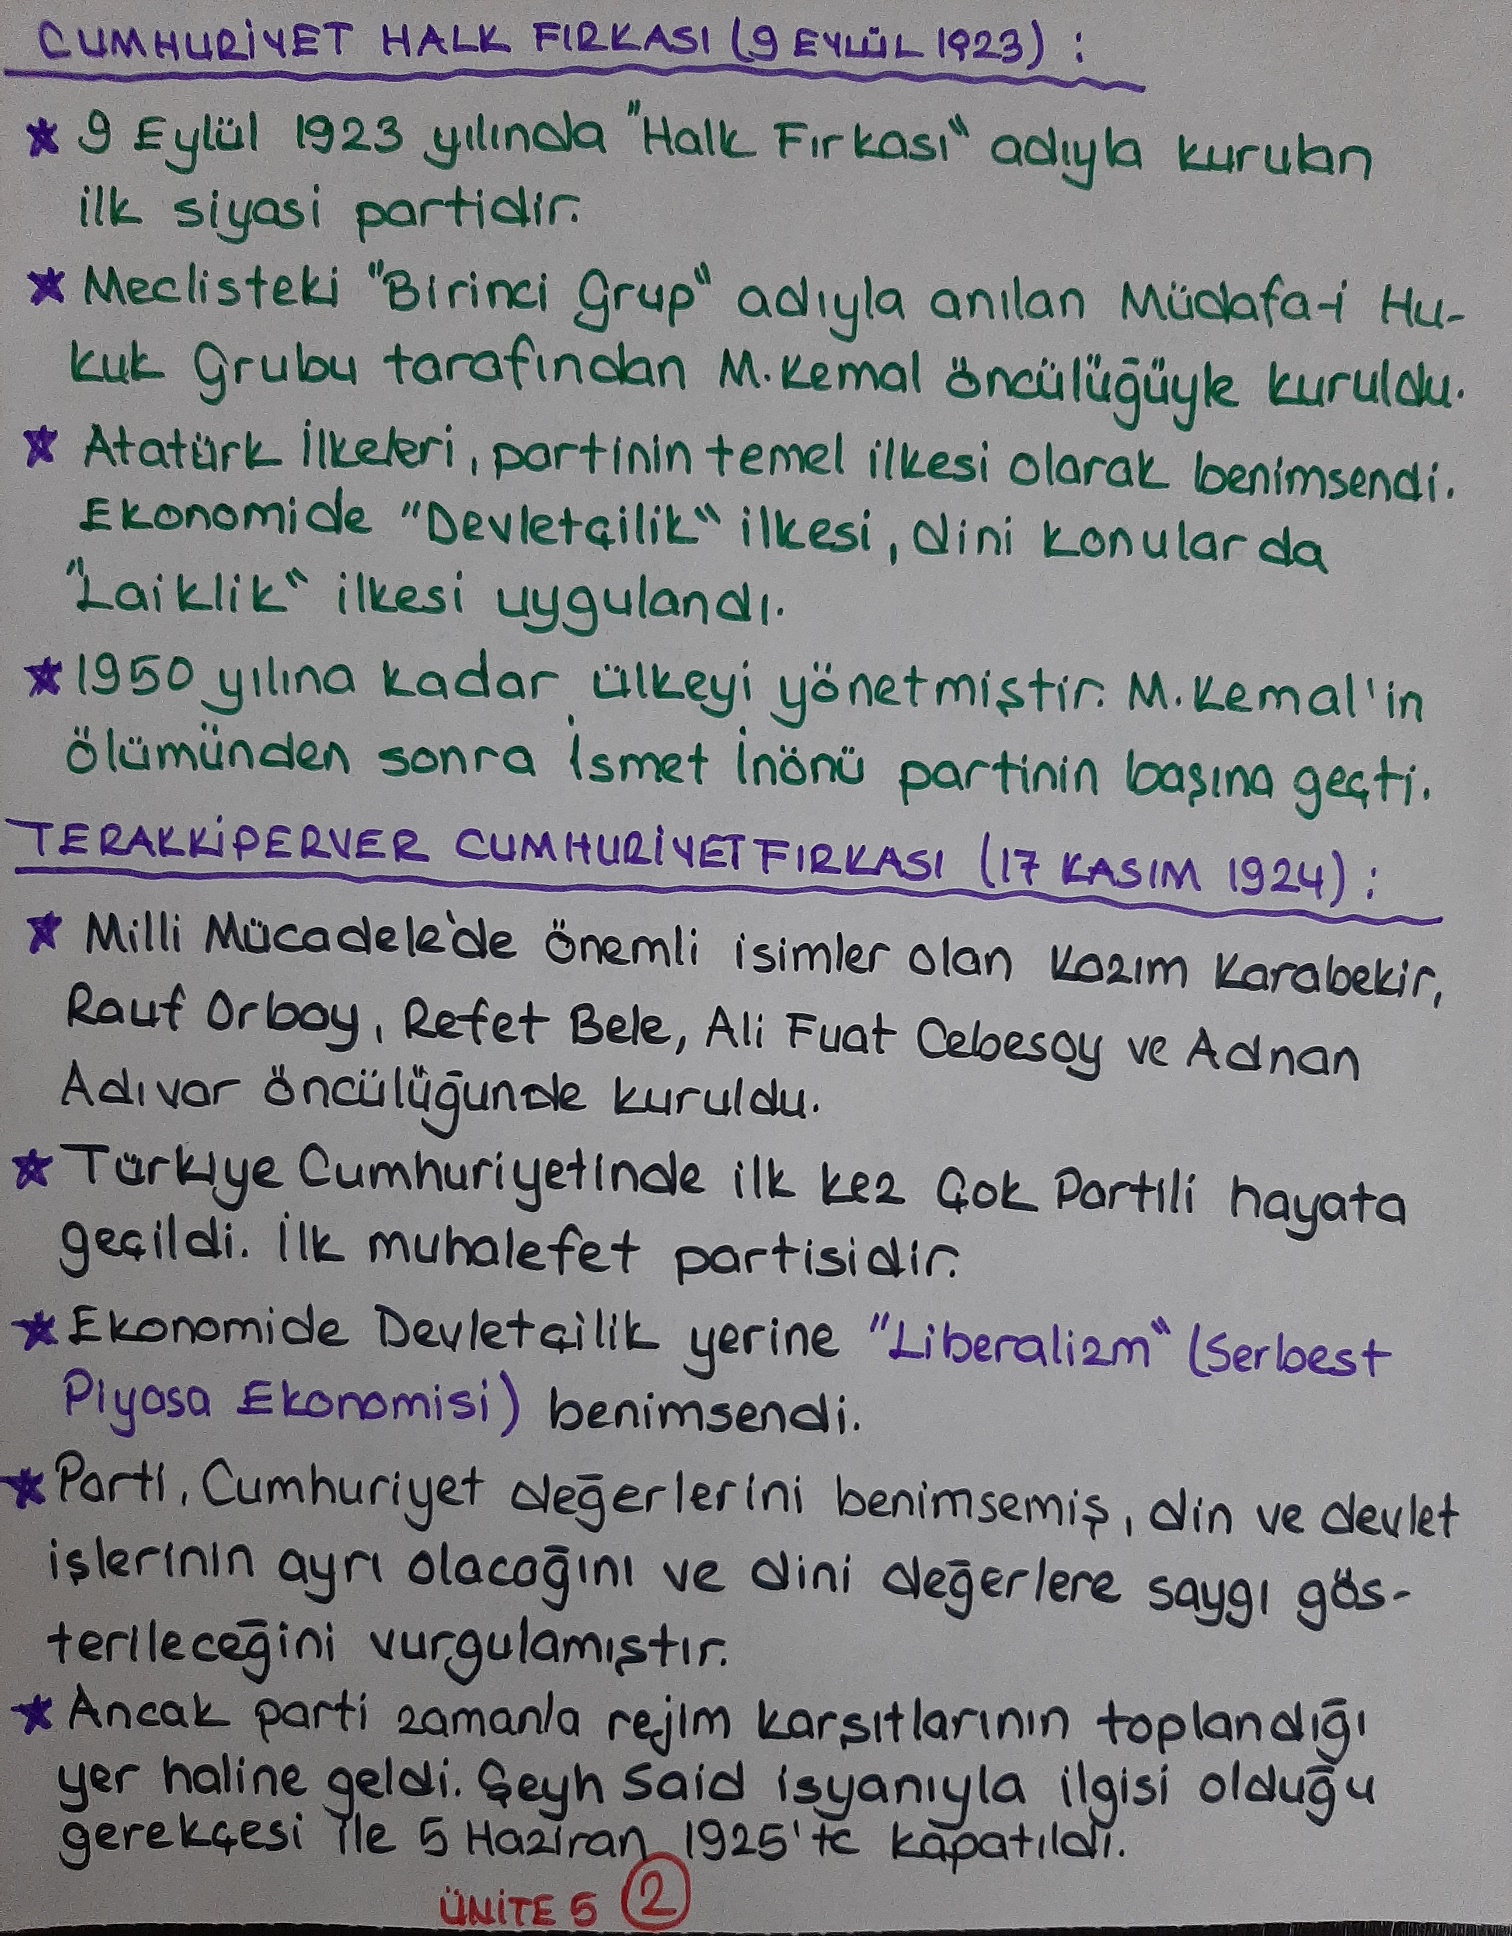 CUMHURİYET HALK FIRKASI (9 EYLÜL 1923) :
★ 9 Eylül 1923 yılında "Halk Fırkası" adıyla kurulan
ilk siyasi partidir.
★ Meclisteki "Birinci Grup" adıyla anılan Müdafa-i Hu-
kuk Grubu tarafından M. Kemal öncülüğüyle kuruldu.
★ Atatürk İlkeleri, partinin temel ilkesi olarak benimsendi.
Ekonomide "Devletçilik" ilkesi, dini konularda
"Laiklik" ilkesi uygulandı.
★ 1950 yılına kadar ülkeyi yönetmiştir. M. Kemal'in
ölümünden sonra İsmet İnönü partinin başına geçti.
TERAKKİPERVER CUMHURİYET FIRKASI (17 KASIM 1924) :
★ Milli Mücadele'de önemli isimler olan Kazım Karabekir,
Rauf Orbay, Refet Bele, Ali Fuat Cebesoy ve Adnan
Adıvar öncülüğünde kuruldu.
★ Türkiye Cumhuriyetinde ilk kez Çok Partili hayata
geçildi. İlk muhalefet partisidir.
★ Ekonomide Devletçilik yerine "Liberalizm" (Serbest
Piyasa Ekonomisi) benimsendi.
★ Parti, Cumhuriyet değerlerini benimsemiş, din ve devlet
işlerinin ayrı olacağını ve dini değerlere saygı gös-
terileceğini vurgulamıştır.
★ Ancak parti zamanla rejim karşıtlarının toplandığı
yer haline geldi. Şeyh Said isyanıyla ilgisi olduğu
gerekçesi ile 5 Haziran 1925'te kapatıldı.
ÜNİTE 5 2